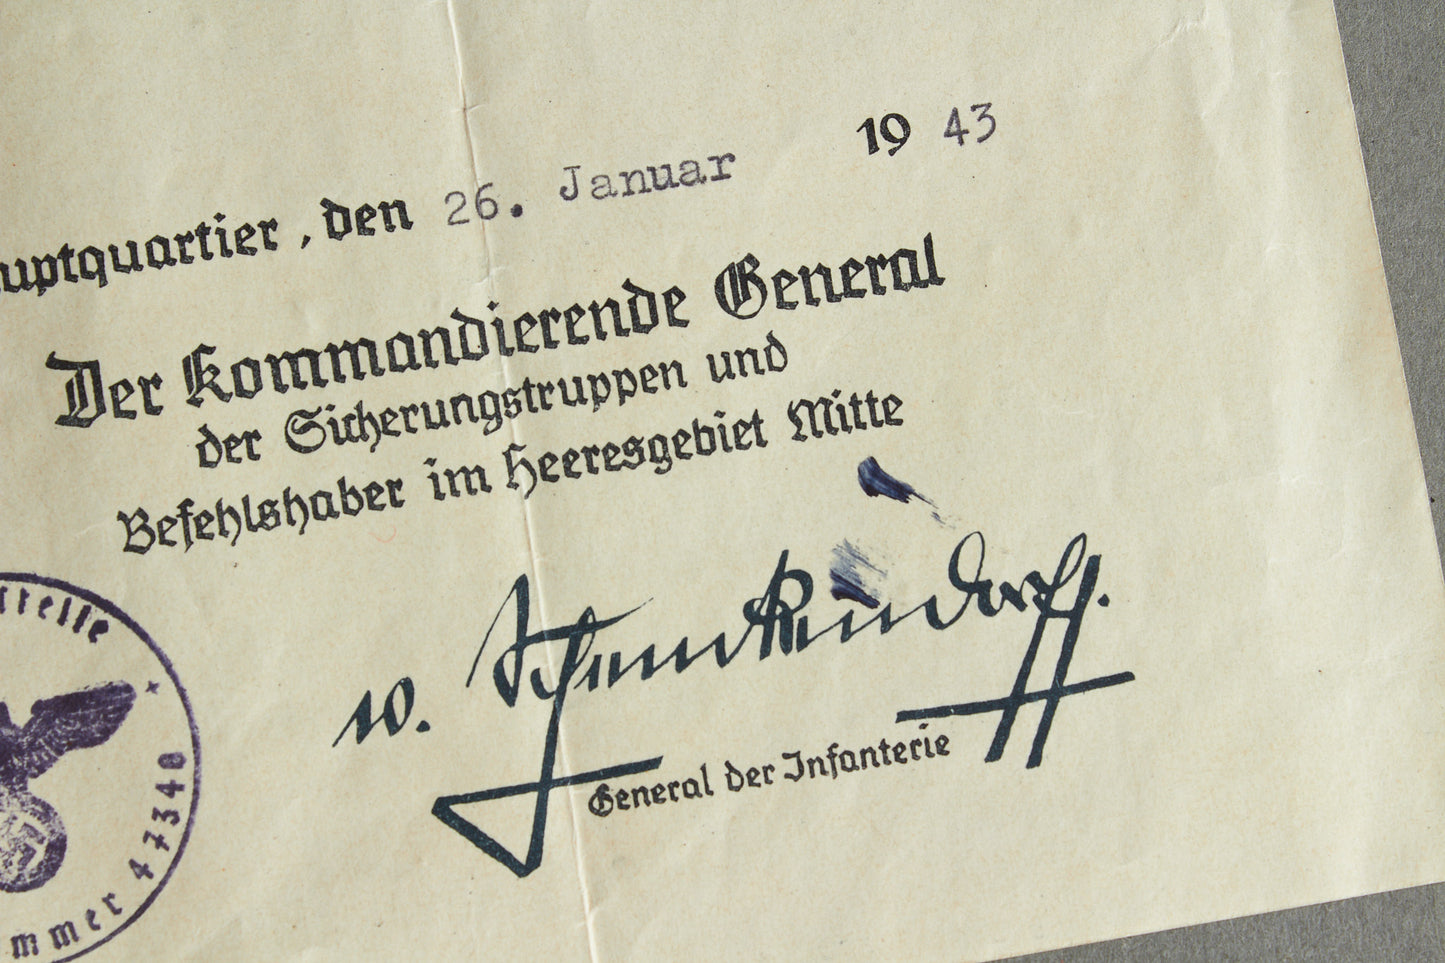 uptquartier, den 26. Januar 19 43
Der Kommandierende General
der Sicherungstruppen und
Befehlshaber im Heeresgebiet Mitte
v. Schenckendorff.
General der Infanterie
telle
mmer 47340